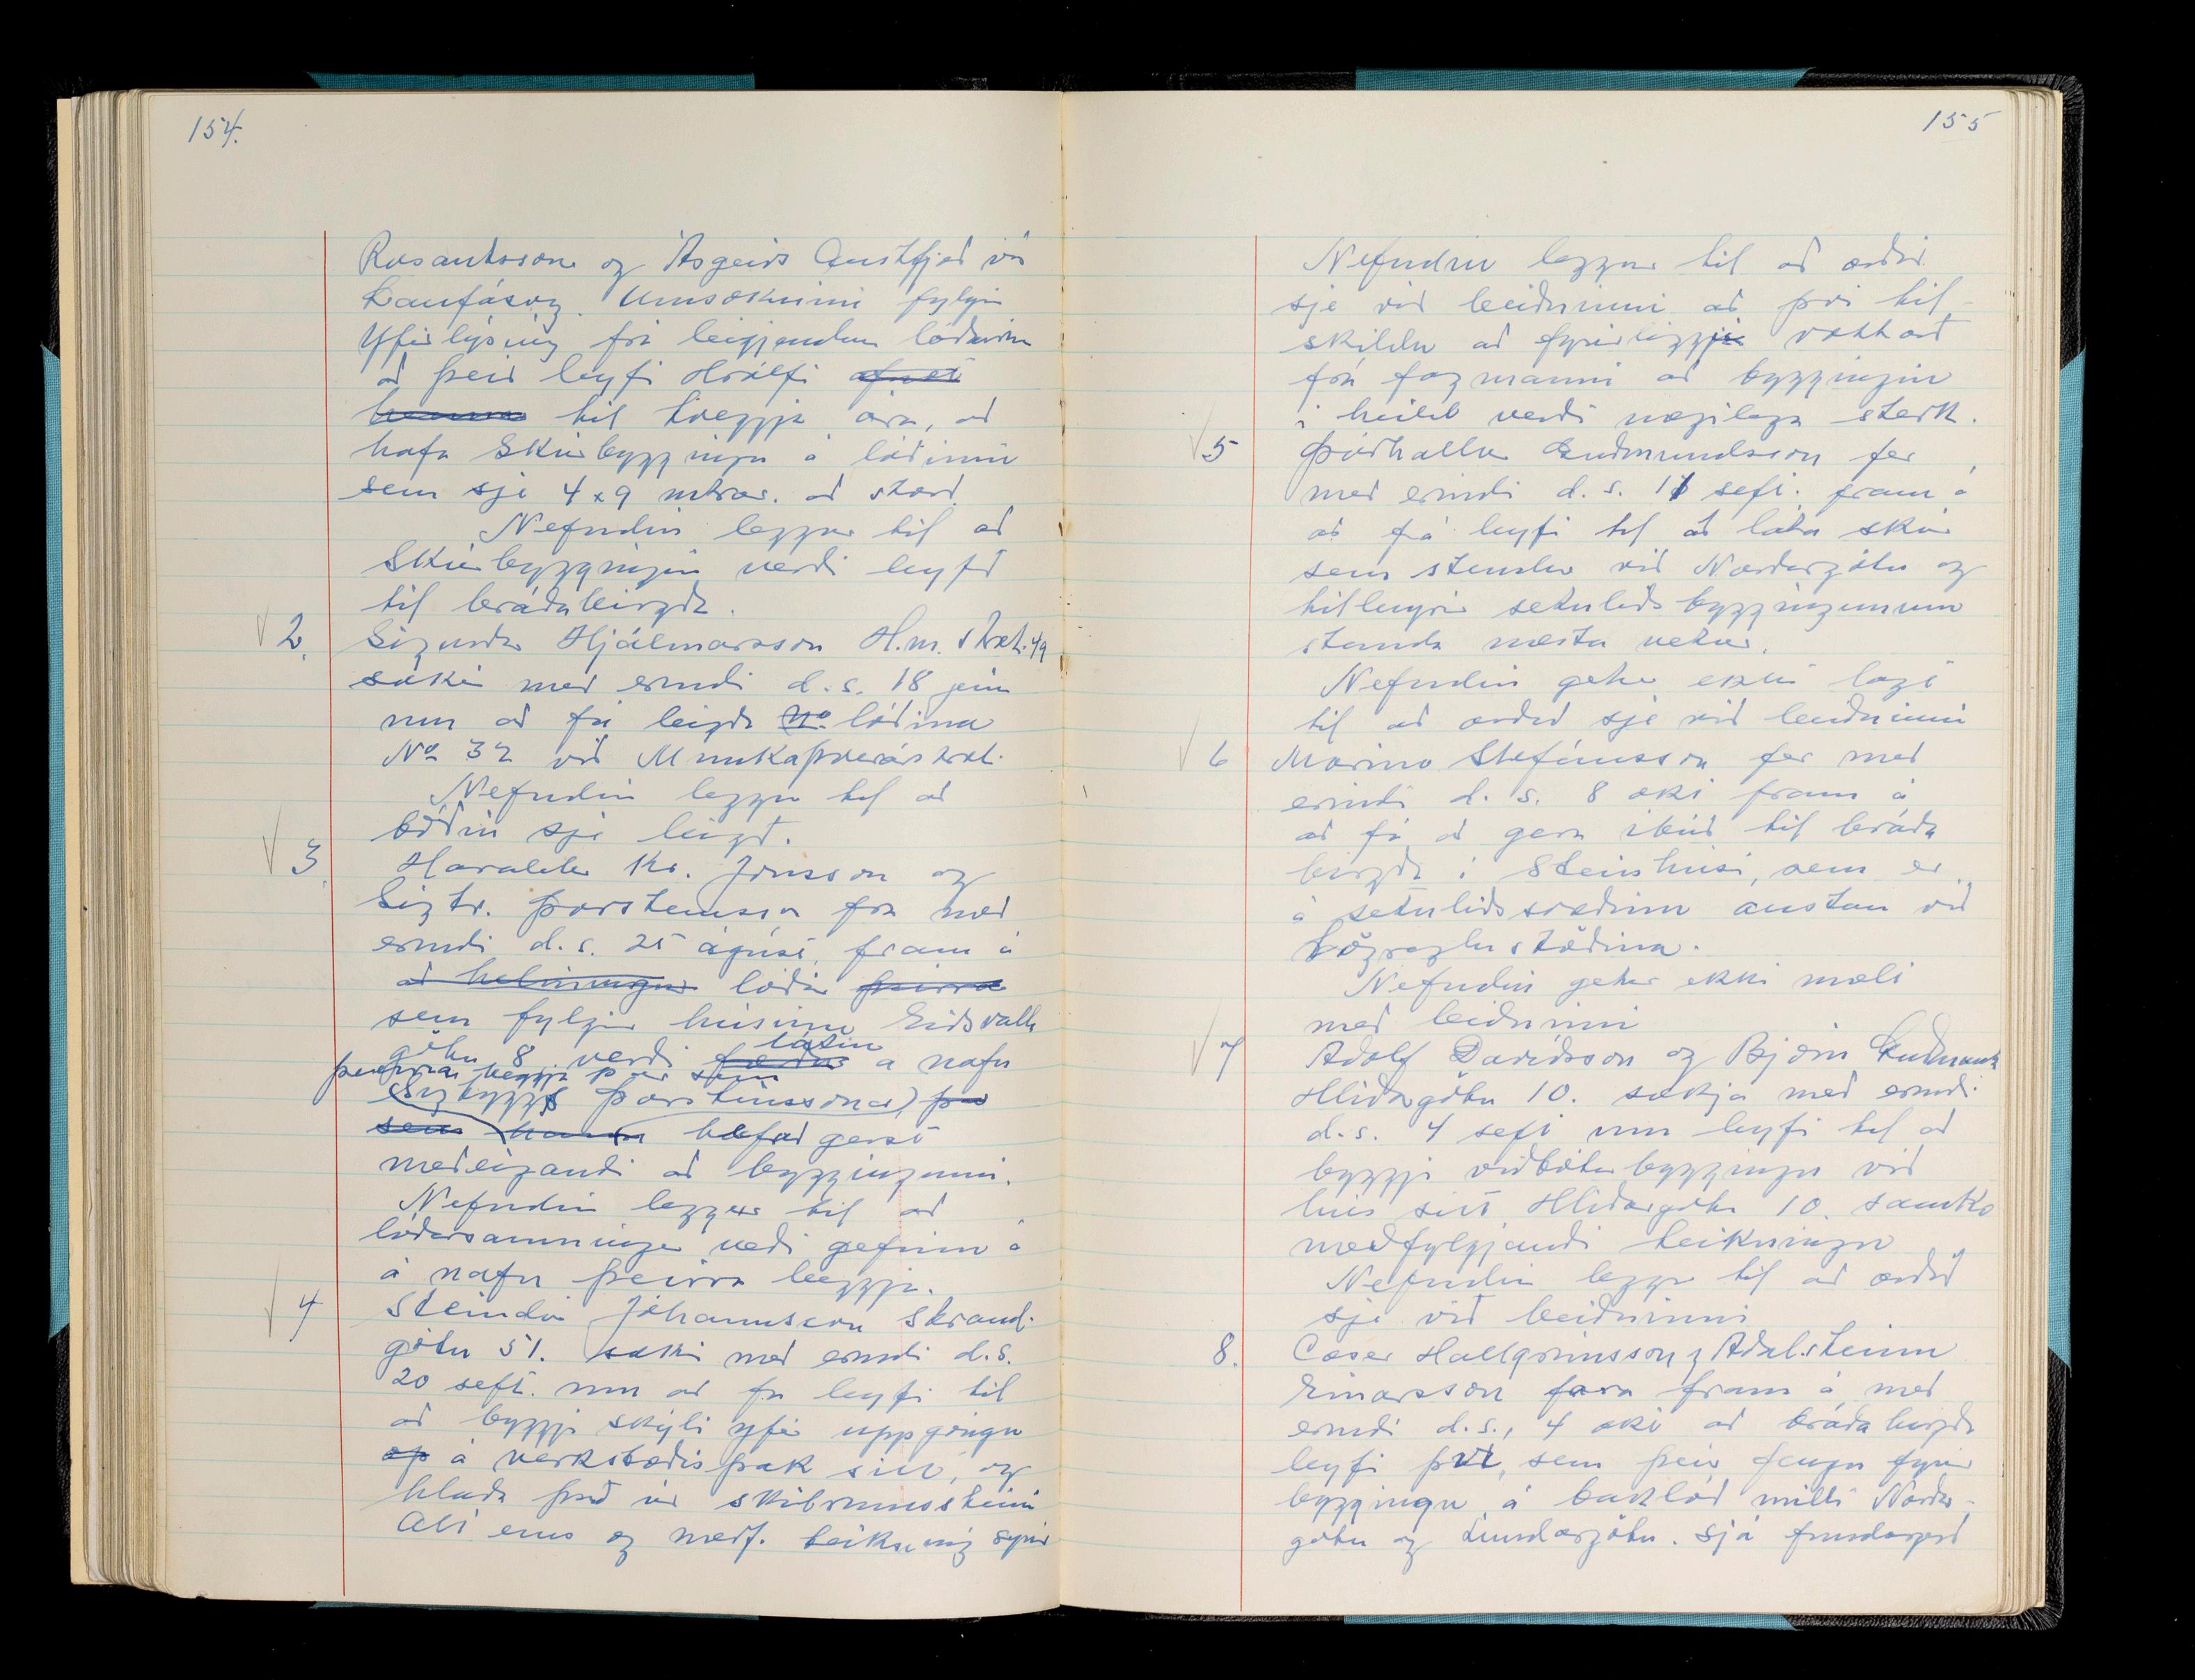 154.
Rósantssonar og Ásgeirs Austfjörð við
Laufásveg. Umsókninni fylgir
yfirlýsing frá leigjendum lóðarinnar
að þeir leyfi Hrólfi
til tveggja ára, að
hafa Skúrbyggingu á lóðinni
sem sje 4x9 mtrar. að stærð.
Nefndin leggur til að
Skúrbyggingin verði leyfð
til bráðabirgða.
2. Sigurður Hjálmarsson H.m. stræt. 49
sækir með erindi d.s. 18 júní
um að fá leigða No lóðina
No 32 við Munkaþverárstræt.
Nefndin leggur til að
lóðin sje leigð.
3. Haraldur Kr. Jónsson og
Sigtr. Þorsteinsson fra með
erindi d.s. 25 ágúst, fram á
að helmingur lóðar þeirra
sem fylgir húsinu Eiðsvalla
götu 8 verði færður látin á nafn
þeirra beggja þar sem
Sigtryggs Þorsteinssonar) þar
sem hann hefað gerst
meðeigandi að byggingunni.
Nefndin leggur til að
lóðarsamningur verði gefinn á
á nafn þeirra beggja.
4 Steindór Jóhannsson Strand-
götu 51. sækir með erindi d.s.
20 seft. um að fá leyfi til
að byggja skýli yfir uppgöngu
op á verkstæðisþak sitt, og
hlaða það úr skibrunssteini
Alt eins og meðf. teikning sýnir
155
Nefndin leggur til að orðið
sje við beiðninni að því til-
skildu að fyrirliggji vottorð
frá fagmanni að byggingin
í heild verði nægilega sterk.
5 Þórhallur Guðmundsson fer
með erindi d.s. 11 seft. fram á
að fá leyfi til að láta skúr
sem stendur við Norðurgötu og
tilheyrir setuliðsbyggingunum
standa næsta vetur.
Nefndin getur ekki lagt
til að orðið sje við beiðninni
6 Marinó Stefánsson fer með
erindi d.s. 8 okt fram á
að fá að gera íbúð til bráða
birgða í Steinhúsi, sem er
á setuliðssvæðinu austan við
Lögreglustöðina.
Nefndin getur ekki mælt
með beiðninni
7 Adolf Davíðsson og Björn Guðmunds
Hlíðargötu 10. sækja með erindi
d.s. 4 seft um leyfi til að
byggja viðbótarbyggingu við
hús sitt Hlíðargötu 10. samkv
meðfylgjandi teikningu
Nefndin leggur til að orðið
sje við beiðninni
8. Cæsar Hallgrímsson & Aðalsteinn
Einarsson fara fram á með
erindi d.s., 4 okt að bráðabirgða
leyfi því, sem þeir fengu fyrir
byggingu á baklóð milli Norður-
götu og Lundargötu. Sjá fundargerð